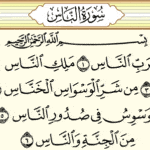 سُورَةُ النَّاسِ
بِسْمِ اللَّهِ الرَّحْمَٰنِ الرَّحِيمِ
رَبِّ النَّاسِ ١ مَلِكِ النَّاسِ
٣ مِن شَرِّ الْوَسْوَاسِ الْخَنَّاسِ
وَسْوِسُ فِي صُدُورِ النَّاسِ ٥
مِنَ الْجِنَّةِ وَالنَّاسِ ٦